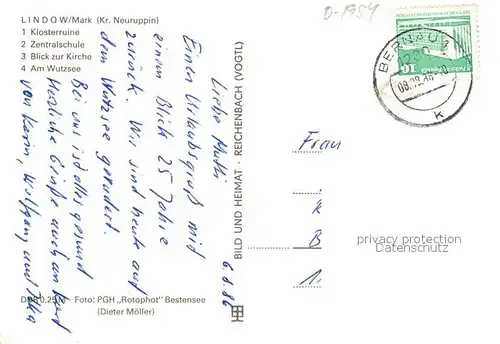 LINDOW/Mark (Kr. Neuruppin)
1 Klosterruine
2 Zentralschule
3 Blick zur Kirche
4 Am Wutzsee
Liebe Mutti
Einen Urlaubsgruß mit
einem Blick 25 Jahre
zurück. Wir sind heute auf
dem Wutzsee gerudert.
Bei uns ist alles gesund
Herzliche Grüße auch an
von Karin, Wolfgang, und
6.8.86
DDR 0,25 M Foto: PGH „Rotophot" Bestensee
(Dieter Möller)
BILD UND HEIMAT · REICHENBACH (VOGTL)
0-1954
BERNAU
10
Frau
K
B
1
privacy protection
Datenschutz